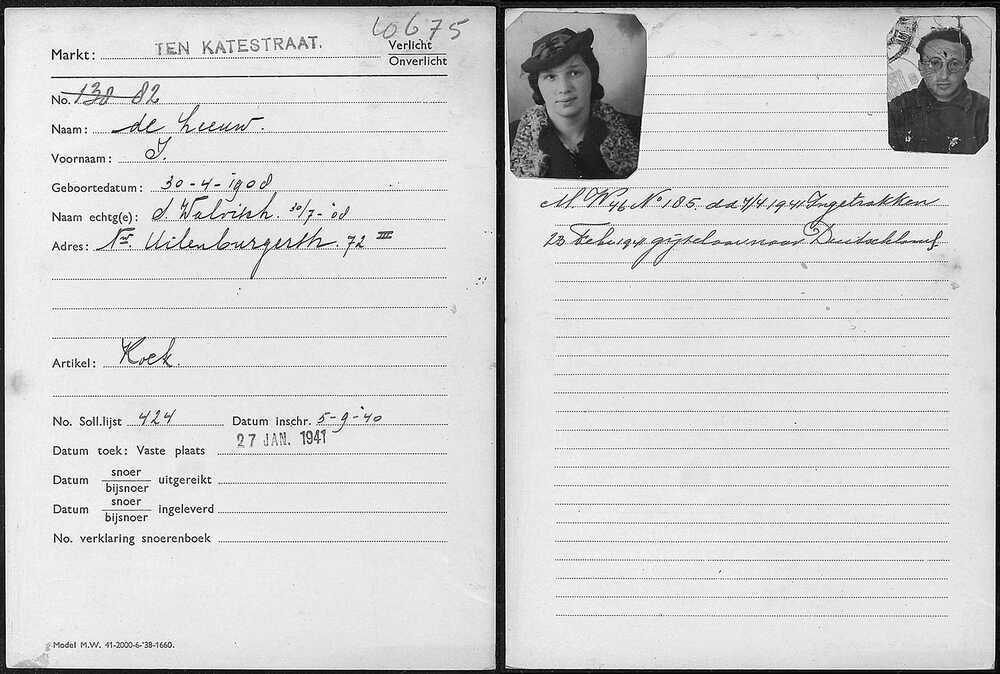 10675
Markt: TEN KATESTRAAT. Verlicht
Onverlicht
No. 138 82
Naam: de Leeuw.
Voornaam: I.
Geboortedatum: 30-4-1908
Naam echtg(e): d. Walvisch. 30/7-'08
Adres: Nw. Uilenburgerstr. 72 III
Artikel: Koek.
No. Soll.lijst 424 Datum inschr. 5-9-'40
Datum toek: Vaste plaats 27 JAN. 1941
Datum snoer uitgereikt
bijsnoer
Datum snoer ingeleverd
bijsnoer
No. verklaring snoerenboek
Model M.W. 41-2000-6-'38-1660.
M.W. 46 No 185. dd 4/4 1941 Ingetrokken
23 Febr 1941 naar Duitschland